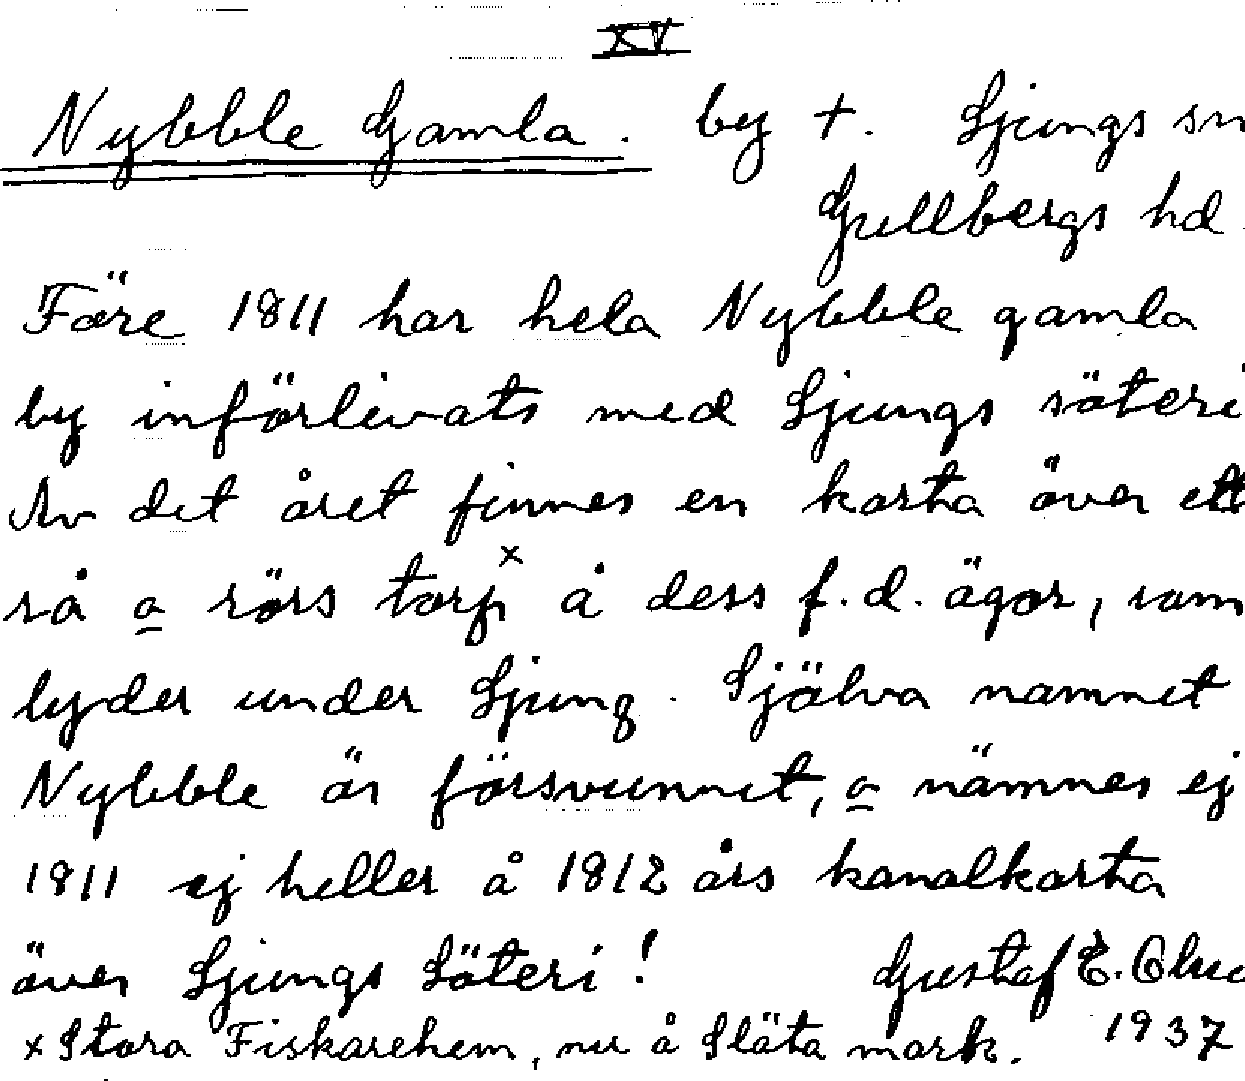 XV
Nybble Gamla. by +. Ljungs sn
Gullbergs hd.
Före 1811 har hela Nybble gamla
by införlivats med Ljungs säteri
Av det året finnes en karta över ett
rå o rörs torp x å dess f.d. ägor, som
lyder under Ljung. Själva namnet
Nybble är försvunnet, o nämnes ej
1811 ej heller å 1812 års kanalkarta
över Ljungs Säteri! Gustaf E.
x Stora Fiskarehem, nu å Släta mark. 1937